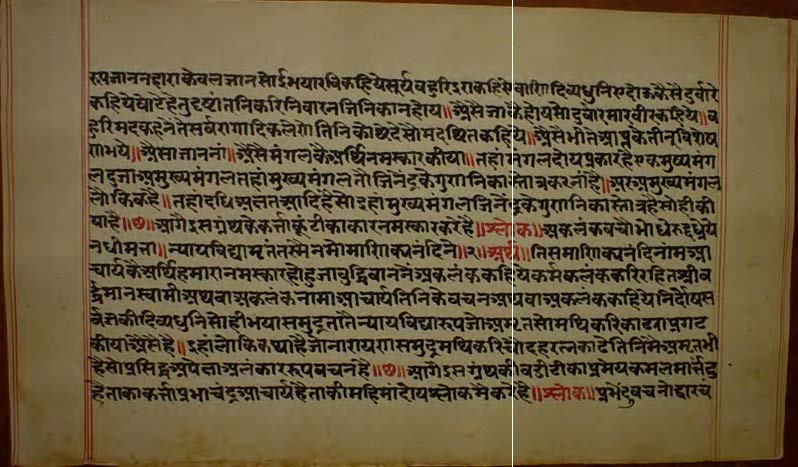 रूपजाननहाराकेवलज्ञानसोईभयारविकहियेसूर्यबहुरिइराकहिये वाणीदिव्यधुनिरुदोऊकैसेदुर्वारे
कहियेषोटेहेतुदृष्टांतनिकरिनिवारनजिनिकानहोय॥ऐसैजाकैहोयसोदुर्वारमारवीरकहिये॥ब
हुरिमदकहनेतैसर्वरागादिकलेणेतिनिकै सोमदमथितकहिये॥ऐसेभीतेआप्तकेतीनविशेष
णभये॥ऐसाजाननां॥ऐसैमंगलकैअर्थिनमस्कारकीया॥तहांमंगलदोयप्रकारहैएकमुख्यमंग
लदूजाअमुख्यमंगलतहांमुख्यमंगलतौजिनेंद्रकेगुणनिकास्तोत्रकरनांहै॥अरुअमुख्यमंगल
लौकिकहै॥तहांदधिअक्षतआदिहैसोइहांमुख्यमंगलजिनेंद्रकेगुणनिकास्तोत्रहैसोहीकी
याहै॥७॥आगैइसग्रंथकेकर्त्ताकूंटीकाकारनमस्कारकरेहै॥श्लोक॥अकलंकवचोंभोधेरुद्दध्रेये
नधीमता॥न्यायविद्यामृतंतस्मैनमोमाणिक्यनंदिने॥२॥अर्थ॥तिसमाणिक्यनंदिनामआ
चार्यकैअर्थिहमारानमस्कारहोहुजाबुद्धिवाननेंअकलंककहियेकर्मकलंककरिरहितश्रीव
र्द्धमानस्वामीअथवाअकलंकनामाआचार्यतिनिकेवचनअथवाअकलंककहियेनिर्दोषस
र्वज्ञकीदिव्यधुनिसोहीभयासमुद्रतातैन्यायविद्यारूपजोअमृतसोमथिकरिकाढ्याप्रगट
कीयाऐसेहै॥इहांलोकिकथाहैजोनारायणसमुद्रमथिकरिचोदहरत्नकाढेतिनिमेअमृतभी
हैसोप्रसिद्धअपेक्षाअलंकाररूपवचनहै॥७॥आगैइसग्रंथकीबडीटीकाप्रमेयकमलमार्त्तंड
हैताकाकर्त्ताप्रभाचंद्रआचार्यहैताकीमहिमांदोयश्लोकमेकरेहै॥श्लोक॥प्रभेंदुवचनोदारचं